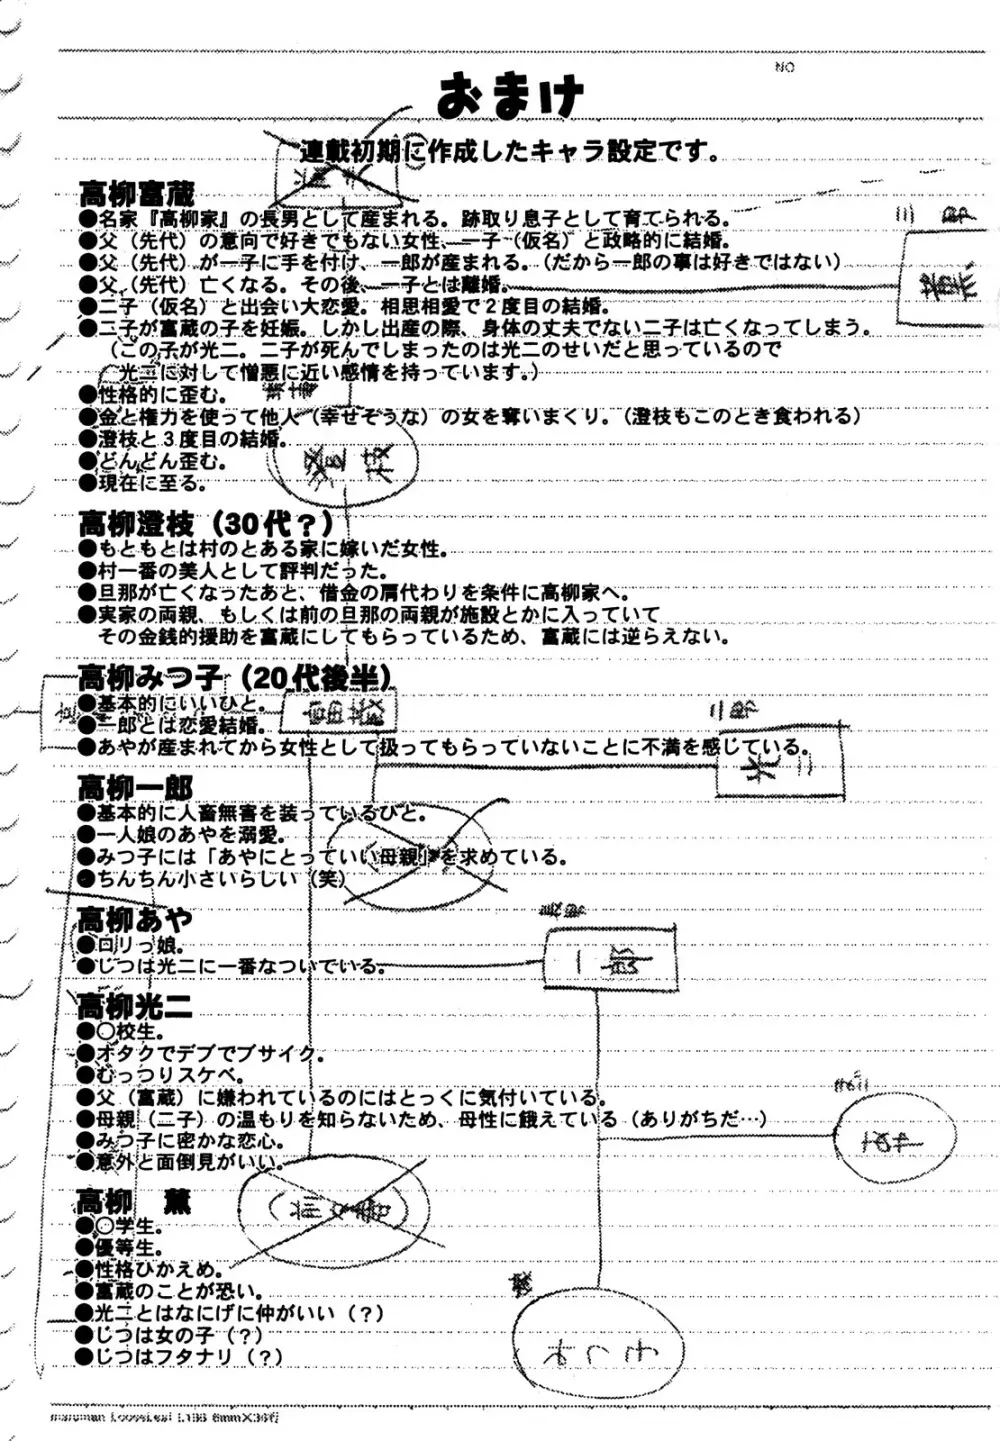 NO
おまけ
連載初期に作成したキャラ設定です。
高柳富蔵
●名家『高柳家』の長男として産まれる。跡取り息子として育てられる。
●父（先代）の意向で好きでもない女性、一子（仮名）と政略的に結婚。
●父（先代）が一子に手を付け、一郎が産まれる。（だから一郎の事は好きではない）
●父（先代）亡くなる。その後、一子とは離婚。
●二子（仮名）と出会い大恋愛。相思相愛で２度目の結婚。
●二子が富蔵の子を妊娠。しかし出産の際、身体の丈夫でない二子は亡くなってしまう。
（この子が光二。二子が死んでしまったのは光二のせいだと思っているので
光二に対して憎悪に近い感情を持っています。）
●性格的に歪む。
●金と権力を使って他人（幸せそうな）の女を奪いまくり。（澄枝もこのとき食われる）
●澄枝と３度目の結婚。
●どんどん歪む。
●現在に至る。
澄枝
三郎
薫
高柳澄枝（30代？）
●もともとは村のとある家に嫁いだ女性。
●村一番の美人として評判だった。
●旦那が亡くなったあと、借金の肩代わりを条件に高柳家へ。
●実家の両親、もしくは前の旦那の両親が施設とかに入っていて
その金銭的援助を富蔵にしてもらっているため、富蔵には逆らえない。
高柳みつ子（20代後半）
●基本的にいいひと。
●一郎とは恋愛結婚。
●あやが産まれてから女性として扱ってもらっていないことに不満を感じている。
富蔵
二郎
光二
高柳一郎
●基本的に人畜無害を装っているひと。
●一人娘のあやを溺愛。
●みつ子には「あやにとっていい母親」を求めている。
●ちんちん小さいらしい（笑）
高柳あや
●ロリっ娘。
●じつは光二に一番なついている。
長男
一郎
高柳光二
●○校生。
●オタクでデブでブサイク。
●むっつりスケベ。
●父（富蔵）に嫌われているのにはとっくに気付いている。
●母親（二子）の温もりを知らないため、母性に餓えている（ありがちだ…）
●みつ子に密かな恋心。
●意外と面倒見がいい。
高柳　薫
●○学生。
●優等生。
●性格ひかえめ。
●富蔵のことが恐い。
●光二とはなにげに仲がいい（？）
●じつは女の子（？）
●じつはフタナリ（？）
maruman LooseLeaf L138 6mm×36行